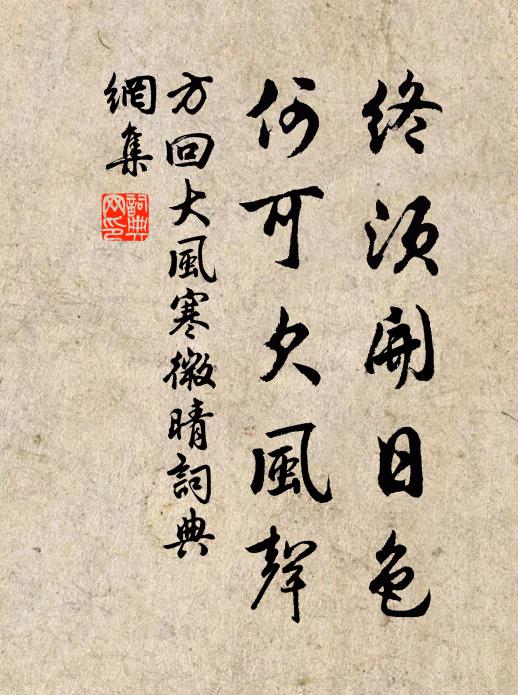 終須開日色
何可久風聲
方回大風寒微晴詞典
網集
詞典
网印